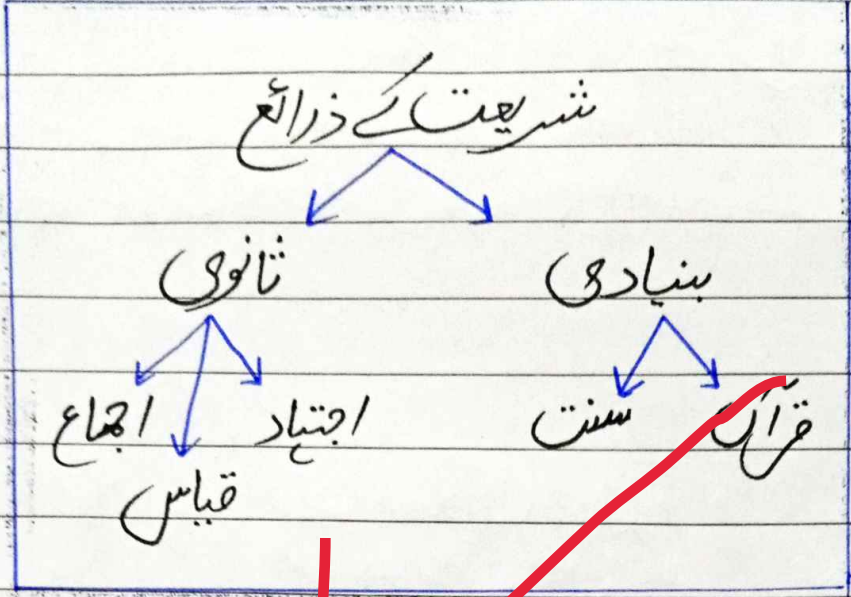 شریعت کے ذرائع
بنیادی ثانوی
قرآن سنت اجتہاد اجماع
قیاس